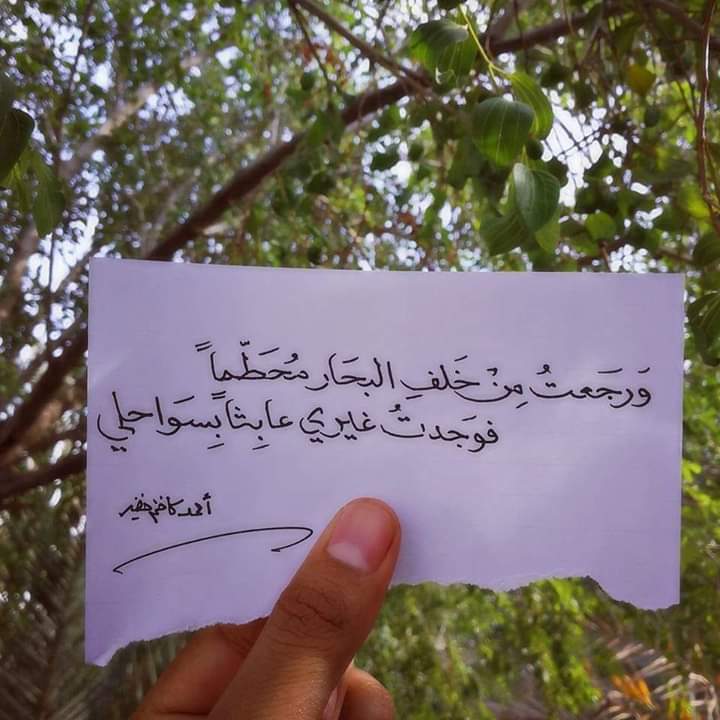 وَرَجَعتُ مِنْ خَلفِ البحَار مُحَطَّماً
فوَجَدتُ غيري عابِثاً بِسوَاحلي
أحمد كاظم خضير